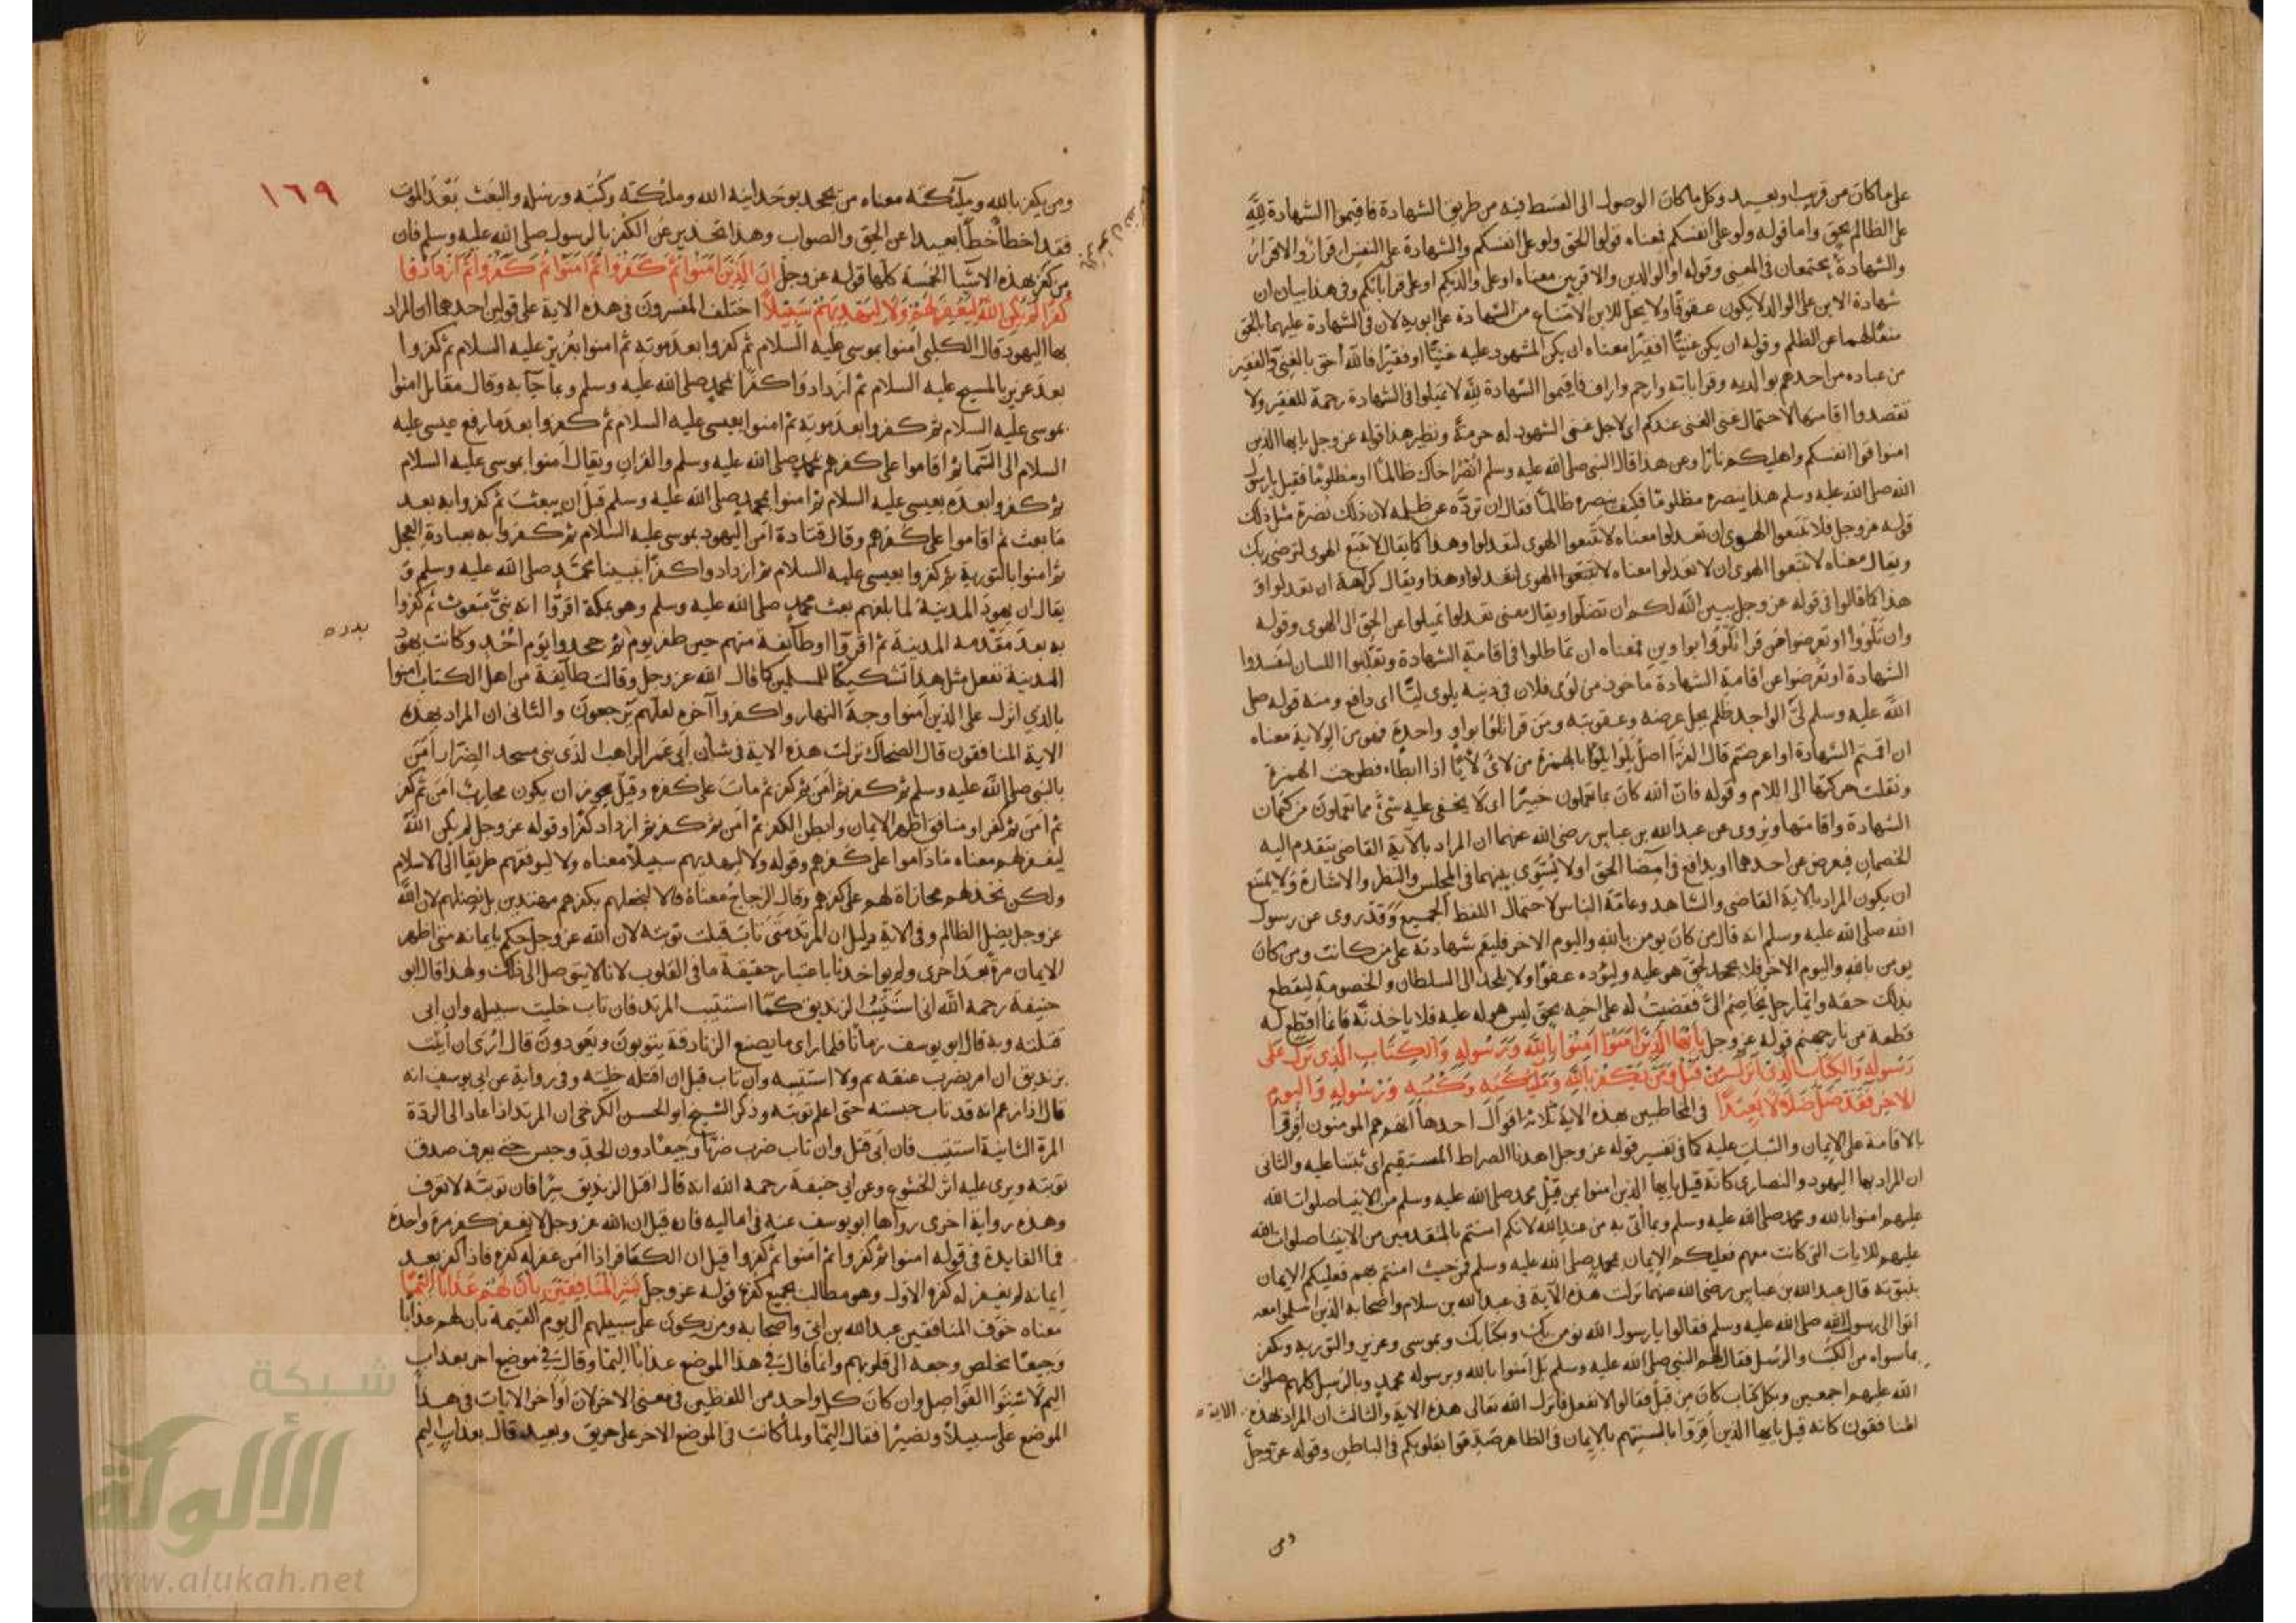 على ما كان من قريب او بعيد وكل ما كان الوصول الى القسط فيه من طريق الشهادة فاقيموا الشهادة لله
على الظالم بحق واما قوله ولو على انفسكم فمعناه قولوا الحق ولو على انفسكم والشهادة على النفس اقرار والاقرار
والشهادة يجتمعان في المعنى وقوله او الوالدين والاقربين معناه او على والديكم او على قراباتكم وفي هذا بيان ان
شهادة الابن على الوالد لا يكون عقوقا ولا يحل للابن الامتناع من الشهادة على ابويه لان في الشهادة عليهما بالحق
منعا لهما عن الظلم وقوله ان يكن غنيا او فقيرا معناه ان يكن المشهود عليه غنيا او فقيرا فالله أحق بالغني والفقير
من عباده من احدهم بوالديه وقراباته وارحم واراف فاقيموا الشهادة لله لا تميلوا في الشهادة رحمة للفقير ولا
تقصدوا اقامتها لاحتمال غنى الغني عندكم اى لاجل غنى الشهود له حرمة ونظير هذا قوله عز وجل يا ايها الذين
امنوا قوا انفسكم واهليكم نارا وعن هذا قال النبي صلى الله عليه وسلم انصر اخاك ظالما او مظلوما فقيل يا رسول
الله صلى الله عليه وسلم هذا ينصره مظلوما فكيف ينصره ظالما فقال ان تردّه عن ظلمه لان ذلك نصرة مثل ذلك
قوله عز وجل فلا تتبعوا الهوى ان تعدلوا معناه لا تتبعوا الهوى لتعدلوا وهذا كما يقال لا تتبع الهوى لترضى ربك
ويقال معناه لا تتبعوا الهوى ان لا تعدلوا معناه لا تتبعوا الهوى لتعدلوا وهذا ويقال كراهة ان تعدلوا و
هذا كما قالوا في قوله عز وجل يبين الله لكم ان تضلوا ويقال معنى تعدلوا تميلوا عن الحق الى الهوى وقوله
وان تلووا او تعرضوا من قرا تلووا بواوين فمعناه ان تماطلوا في اقامة الشهادة وتقلبوا اللسان لتفسدوا
الشهادة او تعرضوا عن اقامة الشهادة ماخوذ من لوى فلان في دينه يلوى ليّا اى دافع ومنه قوله صلى
الله عليه وسلم لىّ الواجد ظلم يحل عرضه وعقوبته ومن قرا تلوا بواو واحدة فهو من الولاية معناه
ان اقمتم الشهادة او اعرضتم قال الفرّا اصل يلوا يلؤا بالهمزة من لائ لأيا اذا ابطاء فطرحت الهمزة
ونقلت حركتها الى اللام وقوله فان الله كان بما تعملون خبيرا اى لا يخفى عليه شئ مما تعملون من كتمان
الشهادة واقامتها ويروى عن عبدالله بن عباس رضى الله عنهما ان المراد بالآية القاضى يتقدم اليه
الخصمان فيعرض عن احدهما او يدافع في امضا الحق او لا يسوّى بينهما في المجلس والنظر والاشارة ولا يمتنع
ان يكون المراد بالاية القاضى والشاهد وعامّة الناس لاحتمال اللفظ الجميع وقد روى عن رسول
الله صلى الله عليه وسلم انه قال من كان يومن بالله واليوم الاخر فليقم شهادته على من كانت ومن كان
يومن بالله واليوم الاخر فلا يجحد لحق هو عليه وليؤده عفوا ولا يلجئه الى السلطان والخصومة ليقطع
بذلك حقه وايّما رجل خاصم الىّ فقضيت له على اخيه بحق ليس هو له عليه فلا ياخذنّه فانما اقطع له
قطعة من نار جهنم قوله عز وجل يا ايها الذين امنوا امنوا بالله ورسوله والكتاب الذي نزل على
رسوله والكتاب الذي انزل من قبل ومن يكفر بالله وملئكته وكتبه ورسوله واليوم
الاخر فقد ضل ضلالا بعيدا في المخاطبين بهذه الاية ثلاثة اقوال احدها انهم هم المومنون
بالاقامة على الايمان والثبات عليه كما في تفسير قوله عز وجل اهدنا الصراط المستقيم اى ثبتنا عليه والثانى
ان المراد بها اليهود والنصارى كانه قيل يا ايها الذين امنوا بمن قبل محمد صلى الله عليه وسلم من الانبيا صلوات الله
عليهم امنوا بالله ومحمد صلى الله عليه وسلم وبما أتى به من عند الله لانكم امنتم بالمتقدمين من الانبيا صلوات الله
عليهم للايات التي كانت معهم فعليكم الايمان بمحمد صلى الله عليه وسلم فمن حيث امنتم بهم فعليكم الايمان
بنبوّته قال عبدالله بن عباس رضى الله عنهما نزلت هذه الآية في عبدالله بن سلام واصحابه الذين اسلموا معه
اتوا الى رسول الله صلى الله عليه وسلم فقالوا يا رسول الله نومن بك وبكتابك وبموسى وعزير والتورية ونكفر
بما سواه من الكتب والرسل فقال لهم النبي صلى الله عليه وسلم بل امنوا بالله وبرسوله محمد وبالرسل كلهم صلوات
الله عليهم اجمعين وبكل كتاب كان من قبل فقالوا لا نفعل فانزل الله تعالى هذه الاية والثالث ان المراد بهذه الاية
المنافقون كانه قيل يا ايها الذين اقروا بالسنتهم بالايمان في الظاهر صدقوا بقلوبكم في الباطن وقوله عز وجل
ومن
١٦٩
ومن يكفر بالله وملآئكته معناه من يجحد بوحدانية الله وملئكته وكتبه ورسله والبعث بعد الموت
فقد اخطأ خطأ بعيدا عن الحق والصواب وهذا تحذير عن الكفر بالرسول صلى الله عليه وسلم فان
من كفر بهذه الاشيا الخمسة كلها قوله عز وجل ان الذين امنوا ثم كفروا ثم امنوا ثم كفروا ثم ازدادوا
كفرا لم يكن الله ليغفر لهم ولا ليهديهم سبيلا اختلف المفسرون في هذه الاية على قولين احدهما ان المراد
بها اليهود قال الكلبى امنوا بموسى عليه السلام ثم كفروا بعد موته ثم امنوا بعزير عليه السلام ثم كفروا
بعد عزير بالمسيح عليه السلام ثم ازدادوا كفرا بمحمد صلى الله عليه وسلم وبما جآ به وقال مقاتل امنوا
بموسى عليه السلام ثم كفروا بعد موته ثم امنوا بعيسى عليه السلام ثم كفروا بعد ما رفع عيسى عليه
السلام الى السما ثم اقاموا على كفرهم بمحمد صلى الله عليه وسلم والقران ويقال امنوا بموسى عليه السلام
ثم كفروا بعده بعيسى عليه السلام ثم امنوا بمحمد صلى الله عليه وسلم قبل ان يبعث ثم كفروا به بعد
ما بعث ثم اقاموا على كفرهم وقال قتادة امن اليهود بموسى عليه السلام ثم كفروا به بعبادة العجل
ثم امنوا بالتورية ثم كفروا بعيسى عليه السلام ثم ازدادوا كفرا بنبينا محمد صلى الله عليه وسلم و
يقال ان يهود المدينة لما بلغهم بعث محمد صلى الله عليه وسلم وهو بمكة اقرّوا انه نبىّ مبعوث ثم كفروا
به بعد مقدمه المدينة ثم اقروا او طآيفة منهم حين ظفر يوم بدر ثم جحدوا يوم أحد وكانت يهود
المدينة تفعل مثل هذا تشكيكا للمسلمين كما قال الله عز وجل وقالت طآيفة من اهل الكتاب امنوا
بالذي انزل على الذين امنوا وجه النهار واكفروا آخره لعلهم يرجعون والثانى ان المراد بهذه
الاية المنافقون قال الضحاك نزلت هذه الاية في شأن ابى عامر الراهب الذى بنى مسجد الضرار امن
بالنبى صلى الله عليه وسلم ثم كفر ثم امن ثم كفر ثم مات على كفره وقيل يجوز ان يكون محارب امن ثم كفر
ثم امن ثم كفر او منافق اظهر الايمان وابطن الكفر ثم امن ثم كفر ثم ازداد كفرا وقوله عز وجل لم يكن الله
ليغفر لهم معناه ما داموا على كفرهم وقوله ولا ليهديهم سبيلا معناه ولا ليوفقهم طريقا الى الاسلام
ولكن نخذلهم مجازاة لهم على كفرهم وقال الزجاج معناه لا يجعلهم بكفرهم مهتدين بل يضلهم لان الله
عز وجل يضل الظالم وفي الاية دليل ان المرتد متى تاب قبلت توبته لان الله عز وجل حكم بايمانه متى اظهر
الايمان مرة بعد اخرى ولم يواخذنا باعتبار حقيقة ما في القلوب لانا لا نتوصل الى ذلك ولهذا قال ابو
حنيفة رحمه الله انى استتيب الزنديق كما استتيب المرتد فان تاب خليت سبيله وان ابى
قتلته وبه قال ابو يوسف زمانا فلما راى ما يصنع الزنادقة يتوبون ويعودون قال ارى ان أتيت
بزنديق ان امر بضرب عنقه ثم ولا استتيبه وان تاب قبل ان اقتله خليته وفي رواية عن ابى يوسف انه
قال اذا زعم انه قد تاب حبسته حتى اعلم توبته وذكر الشيخ ابو الحسن الكرخى ان المرتد اذا عاد الى الردّة
المرة الثانية استتيب فان ابى قتل وان تاب ضرب ضربا وجيعا دون الحد وحبس حتى يعرف صدق
توبته ويرى عليه اثر الخشوع وعن ابي حنيفة رحمه الله انه قال اقتل الزنديق سرّا فان توبته لا تعرف
وهذه رواية اخرى رواها ابو يوسف عنه في اماليه فان قيل ان الله عز وجل لا يغفر كفر مرة واحدة
فما الفايدة في قوله امنوا ثم كفروا ثم امنوا ثم كفروا قيل ان الكافر اذا امن غفر له كفره فاذا كفر بعد
ايمانه لم يغفر له كفره الاول وهو مطالب بجميع كفره قوله عز وجل بشر المنافقين بان لهم عذابا اليما
معناه خوّف المنافقين عبدالله بن ابىّ واصحابه ومن يكون على سبيلهم الى يوم القيمة بان لهم عذابا
وجيعا يخلص وجعه الى قلوبهم وانما قال في هذا الموضع عذابا اليما وقال في موضع اخر بعذاب
اليم لاستوا الفواصل وان كان كل واحد من اللفظين في معنى الاخر لان اواخر الايات في هذا
الموضع على سبيلا ونصيرا فقال اليما ولما كانت في الموضع الاخر على حريق وبعيد قال بعذاب اليم
شبكة
الألوكة
www.alukah.net